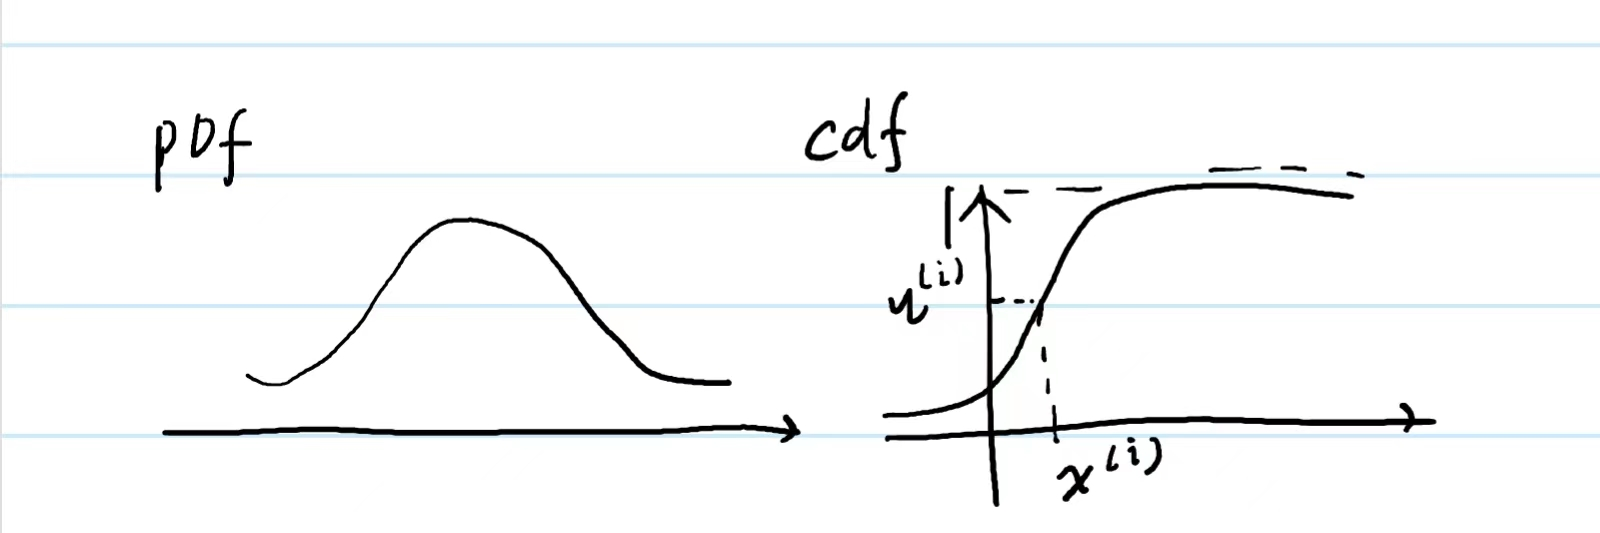 pDf
cdf
1
u^(i)
x^(i)